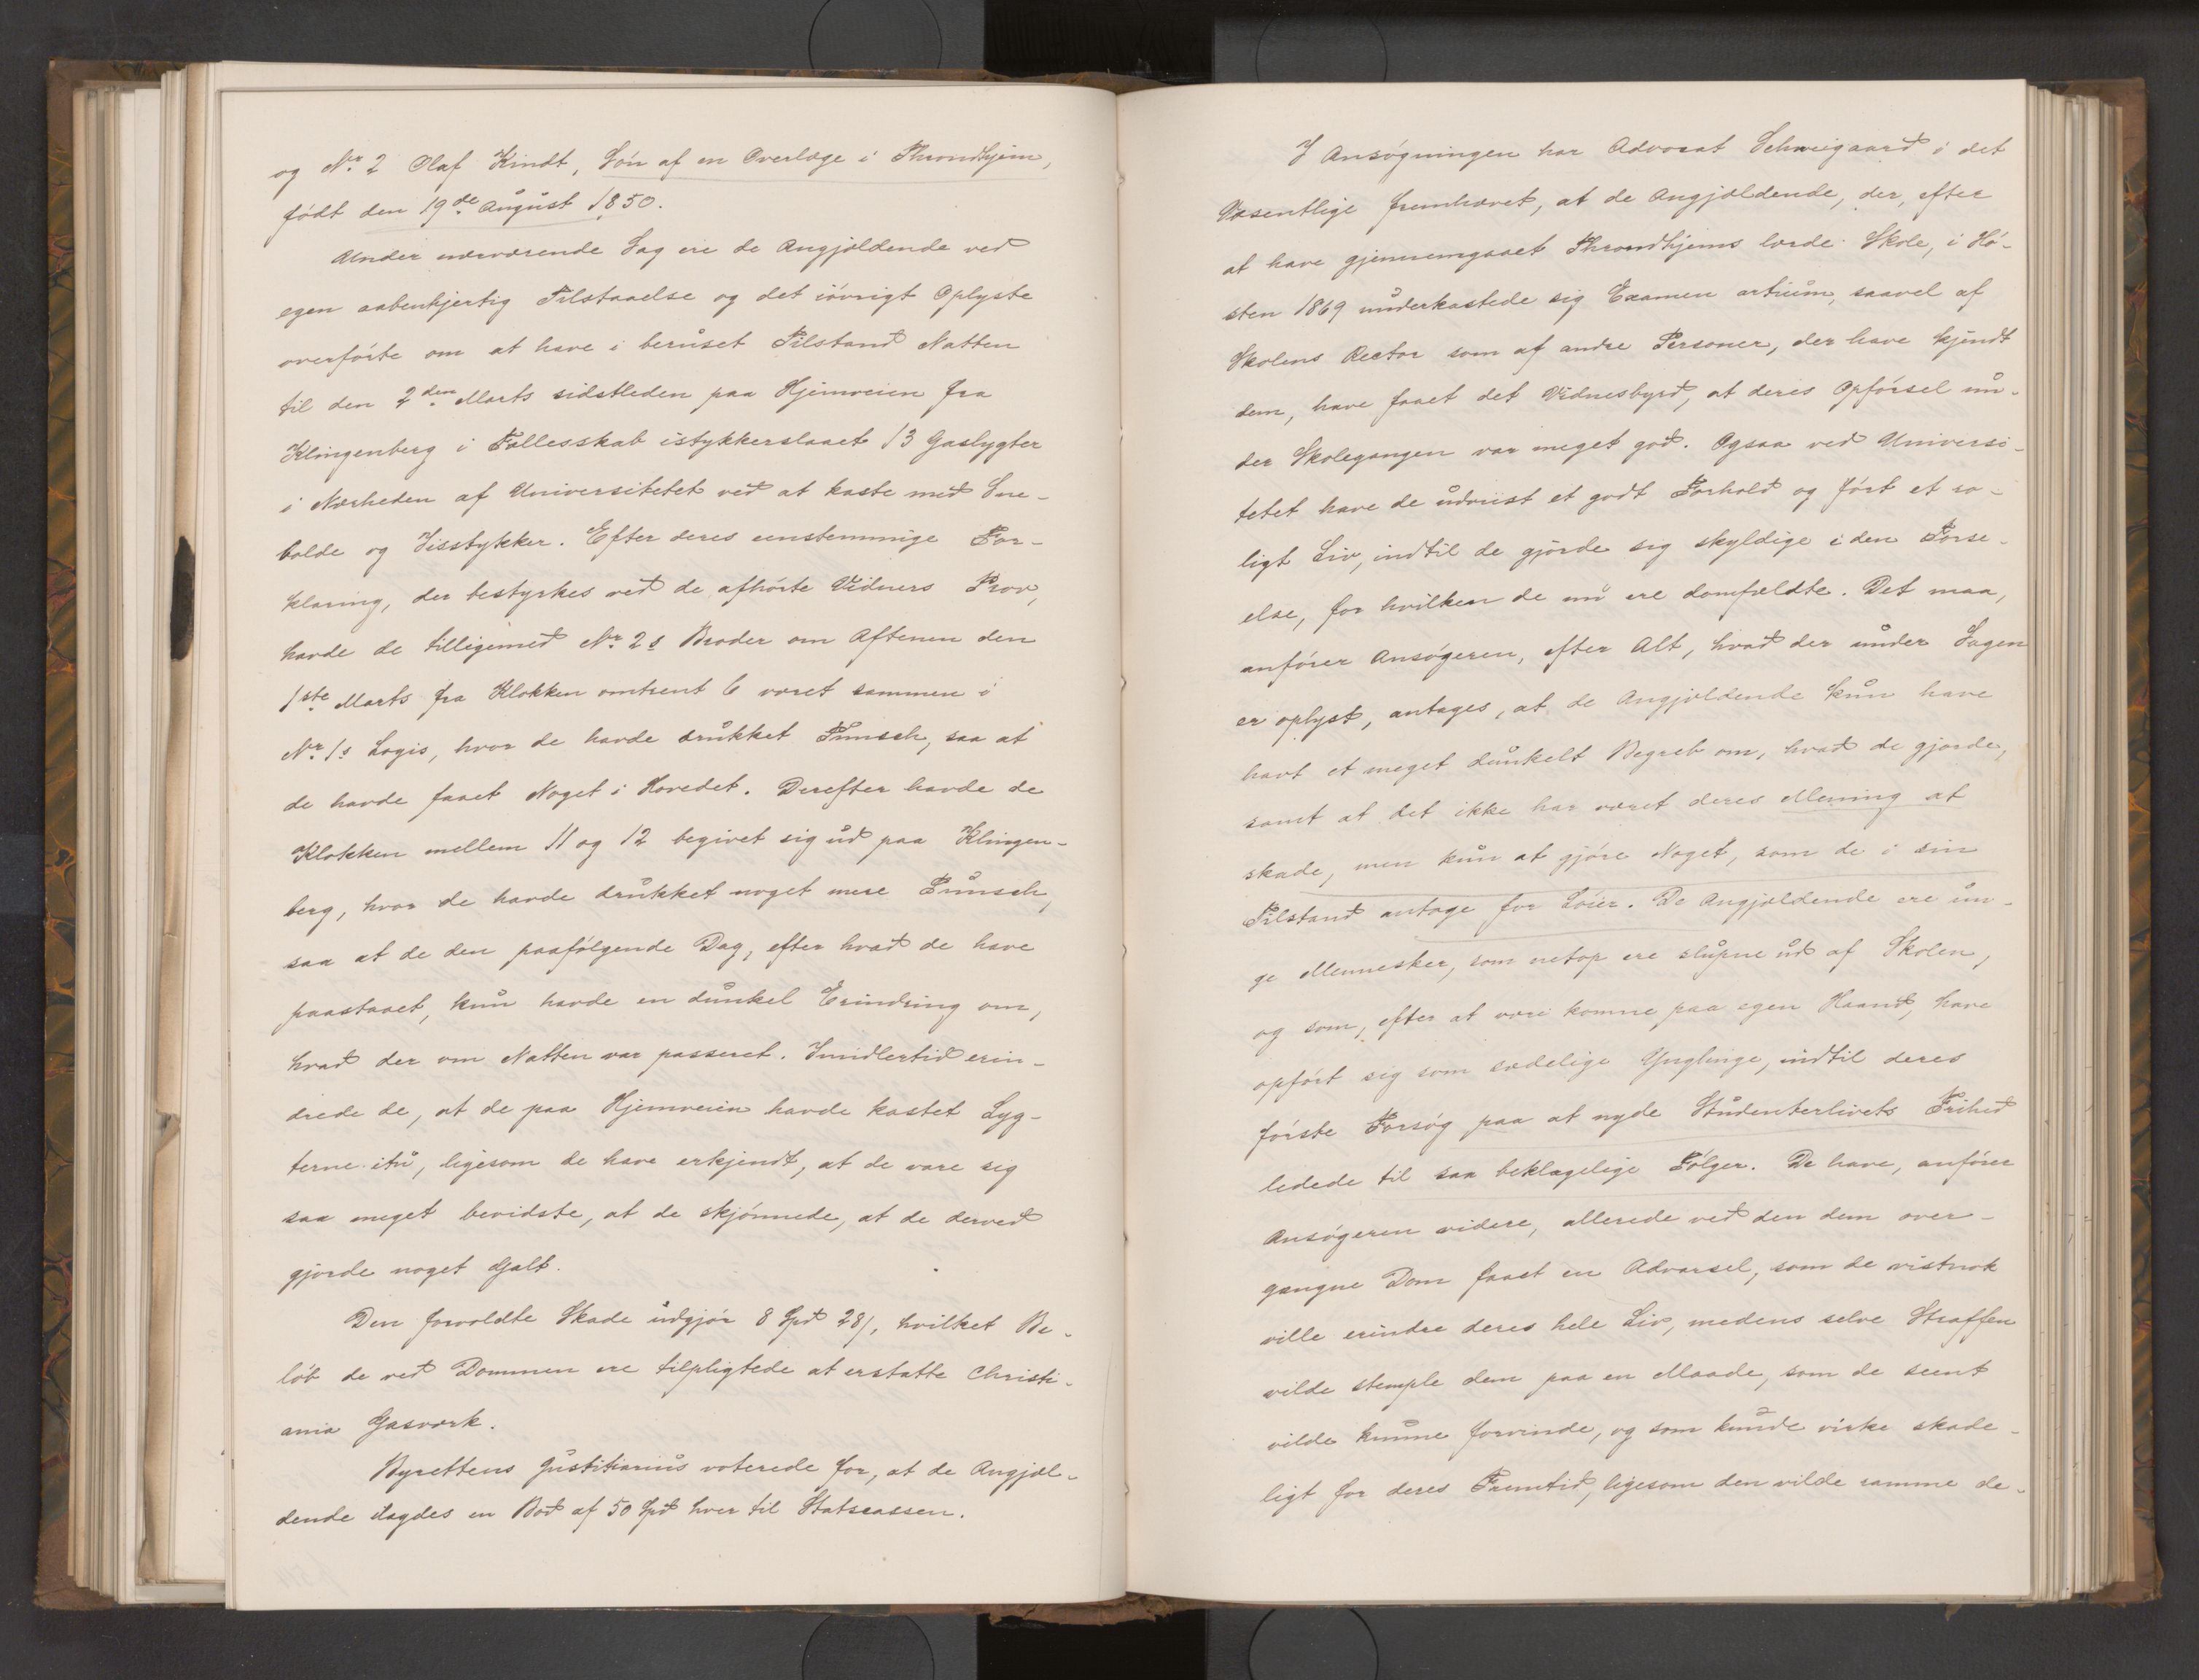 og Nr. 2 Olaf Kindt, Søn af en Overlæge i Throndhjem,
født den 19de August 1850.
Under nærværende Sag ere de Angjældende ved
egen aabenhjertig Tilstaaelse og det iøvrigt Oplyste
overførte om at have i beruset Tilstand Natten
til den 2den Marts sidstleden paa Hjemveien fra
Klingenberg i Fællesskab istykkerslaaet 13 Gaslygter
i Nærheden af Universitetet ved at kaste med Sne-
bolde og Iisstykker. Efter deres eenstemmige For-
klaring, der bestyrkes ved de afhørte Vidners Prov,
havde de tilligemed Nr. 2s Broder om Aftenen den
1ste Marts fra Klokken omtrent 6 været sammen i
Nr. 1s Logis, hvor de havde drukket Punsch, saa at
de havde faaet Noget i Hovedet. Derefter havde de
Klokken mellem 11 og 12 begivet sig ud paa Klingen-
berg, hvor de havde drukket noget mere Punsch,
saa at de den paafølgende Dag, efter hvad de have
paastaaet, kun havde en dunkel Erindring om,
hvad der om Natten var passeret. Imidlertid erin-
drede de, at de paa Hjemveien havde kastet Lyg-
terne itu, ligesom de have erkjendt, at de vare sig
saa meget bevidste, at de skjønnede, at de derved
gjorde noget Galt.
Den forvoldte Skade udgjør 8 Spd 28/, hvilket Be-
løb de ved Dommen ere tilpligtede at erstatte Christi-
ania Gasværk.
Byrettens Justitiarius voterede for, at de Angjæl-
dende ilagdes en Bod af 50 Spd hver til Statscassen.
I Ansøgningen har Advocat Schweigaard i det
Væsentlige fremhævet, at de Angjældende, der, efter
at have gjennemgaaet Throndhjems lærde Skole, i Hø-
sten 1869 underkastede sig Examen artium, saavel af
Skolens Rector som af andre Personer, der have kjendt
dem, have faaet det Vidnesbyrd, at deres Opførsel un-
der Skolegangen var meget god. Ogsaa ved Universi-
tetet have de udviist et godt Forhold og ført et ro-
ligt Liv, indtil de gjorde sig skyldige i den Forse-
else, for hvilken de nu ere domfældte. Det maa,
anfører Ansøgeren, efter Alt, hvad der under Sagen
er oplyst, antages, at de Angjældende kun have
havt et meget dunkelt Begreb om, hvad de gjorde,
samt at det ikke har været deres Mening at
skade, men kun at gjøre Noget, som de i sin
Tilstand antoge for Løier. De Angjældende ere un-
ge Mennesker, som netop ere slupne ud af Skolen,
og som, efter at være komne paa egen Haand, have
opført sig som sædelige Ynglinge, indtil deres
første Forsøg paa at nyde Studenterlivets Frihed
ledede til saa beklagelige Følger. De have, anfører
Ansøgeren videre, allerede ved den dem over-
gangne Dom faaet en Advarsel, som de vistnok
ville erindre deres hele Liv, medens selve Straffen
vilde stemple dem paa en Maade, som de seent
vilde kunne forvinde, og som kunde virke skade-
ligt for deres Fremtid, ligesom den vilde ramme de-